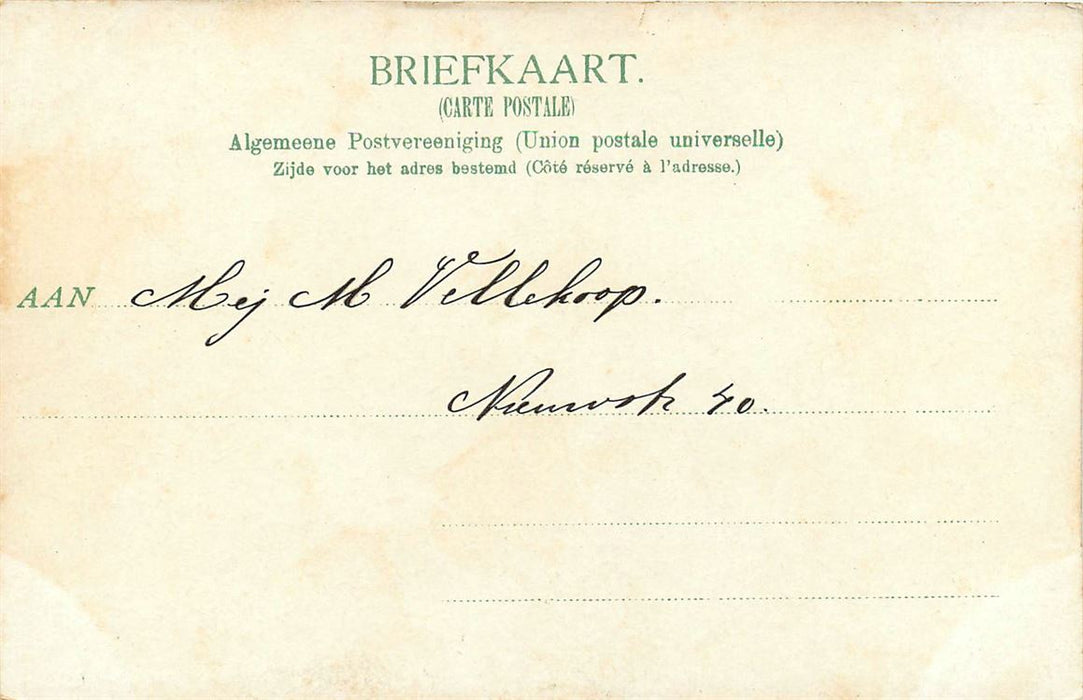 BRIEFKAART.
(CARTE POSTALE)
Algemeene Postvereeniging (Union postale universelle)
Zijde voor het adres bestemd (Côté réservé à l'adresse.)
AAN Mej M Vellekoop.
Nieuwstr 40.